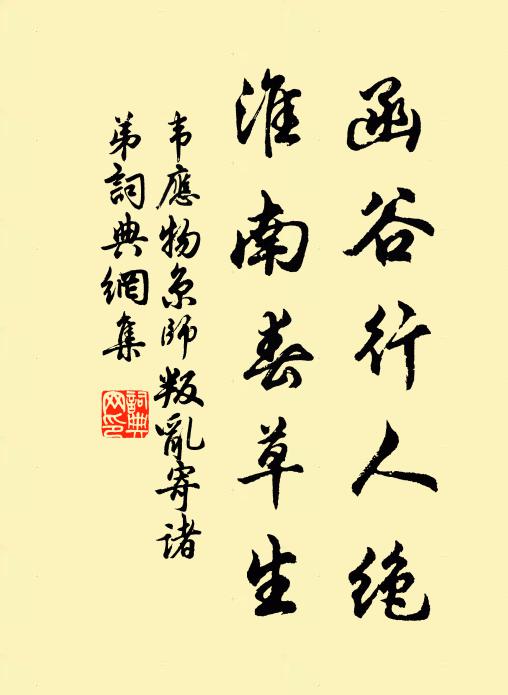 函谷行人绝
淮南春草生
韦應物京师叛亂寄诸
弟詞典網集
詞典网印